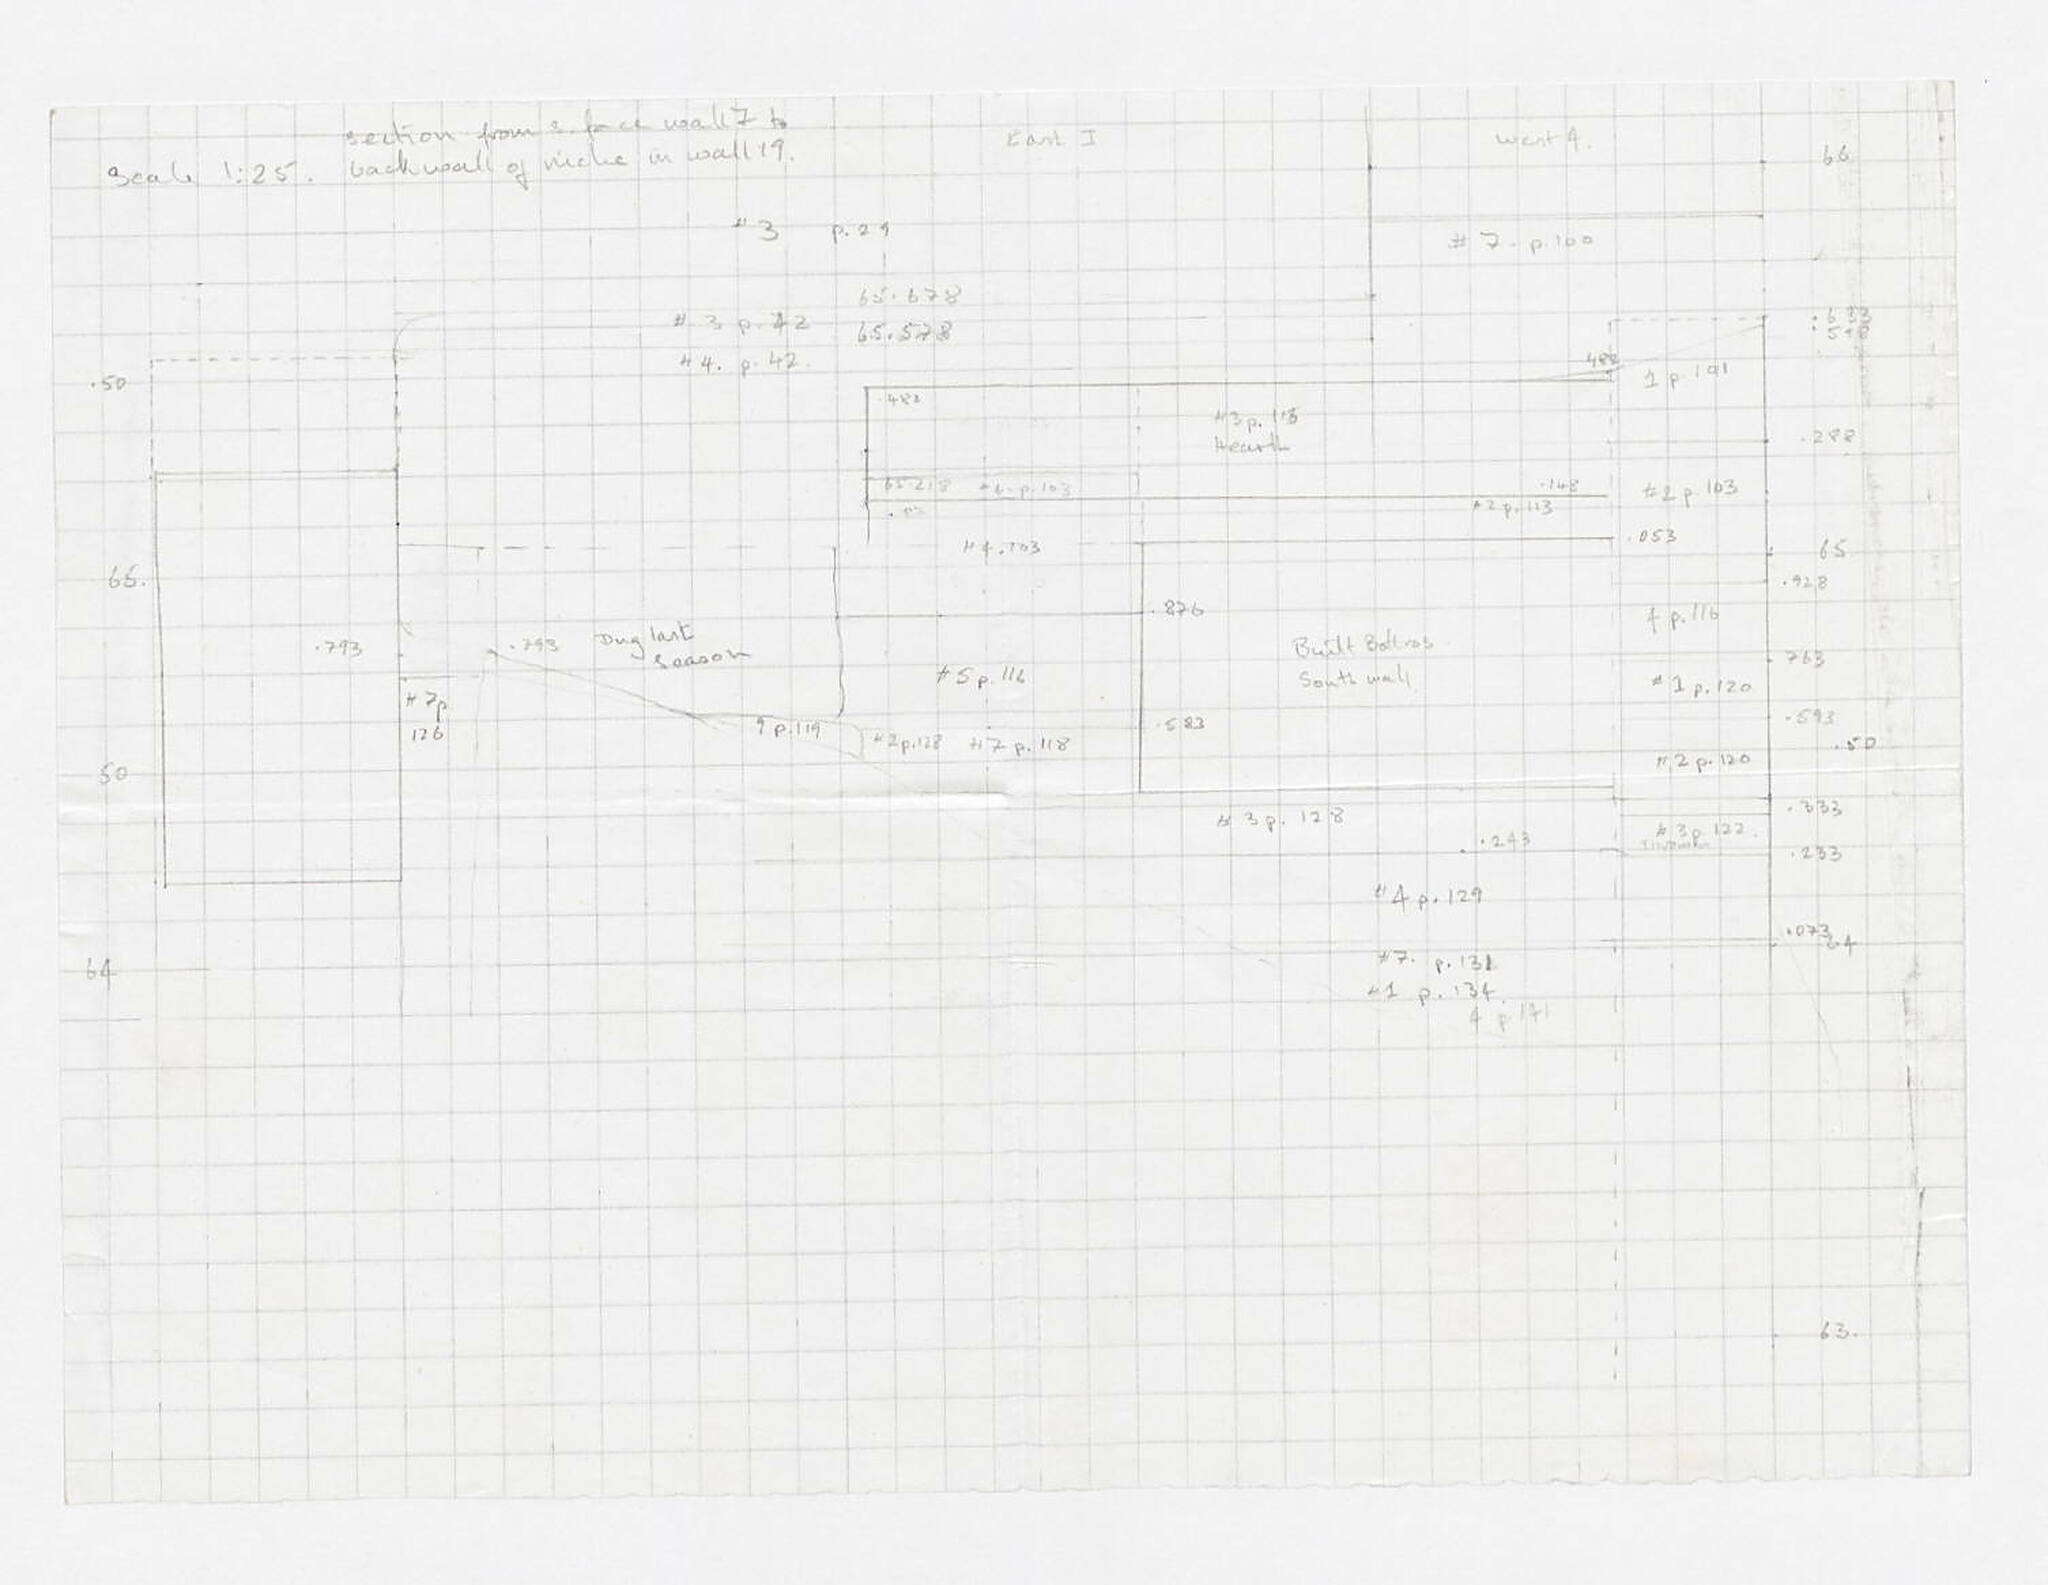 section from s. face wall 7 to
Scale 1:25. back wall of niche in wall 19.
East I
West A.
66
# 3 p. 29
# 7 - p. 100
65.678
# 3 p. 42 65.578
# 4. p. 42.
.633
.50
.482
.482
1 p. 101
# 3 p. 113
Hearth
.288
65.218 # 6 - p. 103
.148
# 2 p. 113
# 2 p. 103
.053
# 4. 103
65
65.
.928
.876
4 p. 116
.793
.793
Dug last
season
Built Bothros
South wall
.763
# 5 p. 116
# 1 p. 120
# 7 p
126
.583
.593
9 p. 119
# 2 p. 128 # 7 p. 118
.50
50
# 2 p. 120
.333
# 3 p. 128
# 3 p. 122.
.243
.233
# 4 p. 129
.073
64
64
# 7. p. 131
# 1 p. 134.
4 p. 171
63.